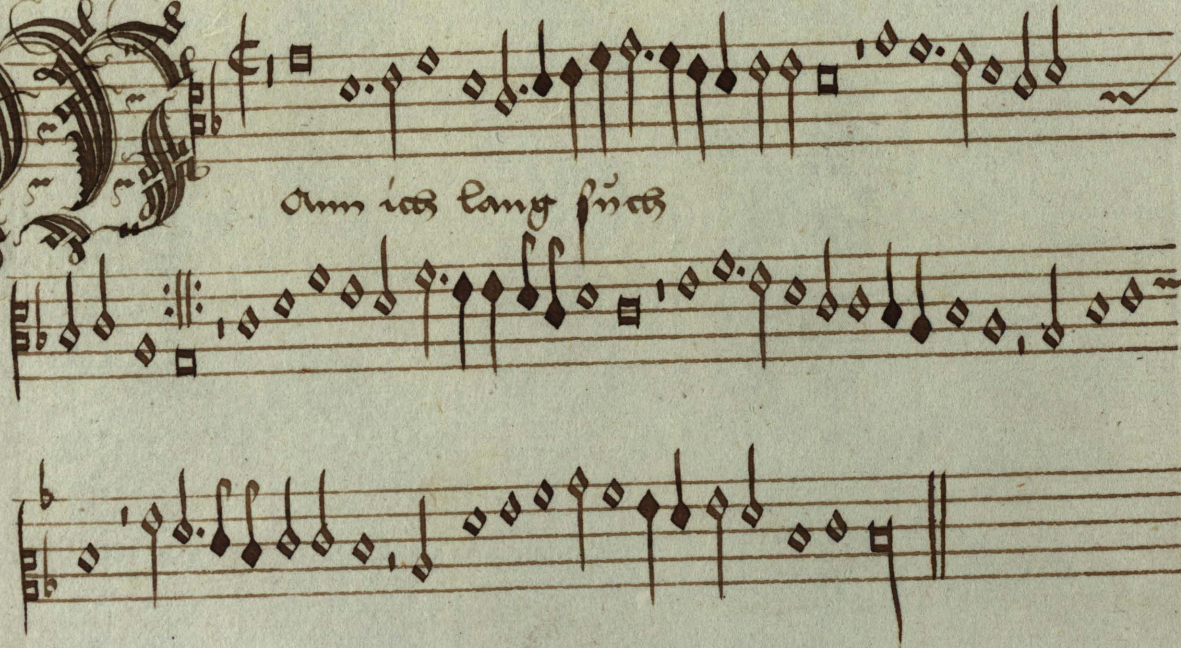 Ann ich lang sůch